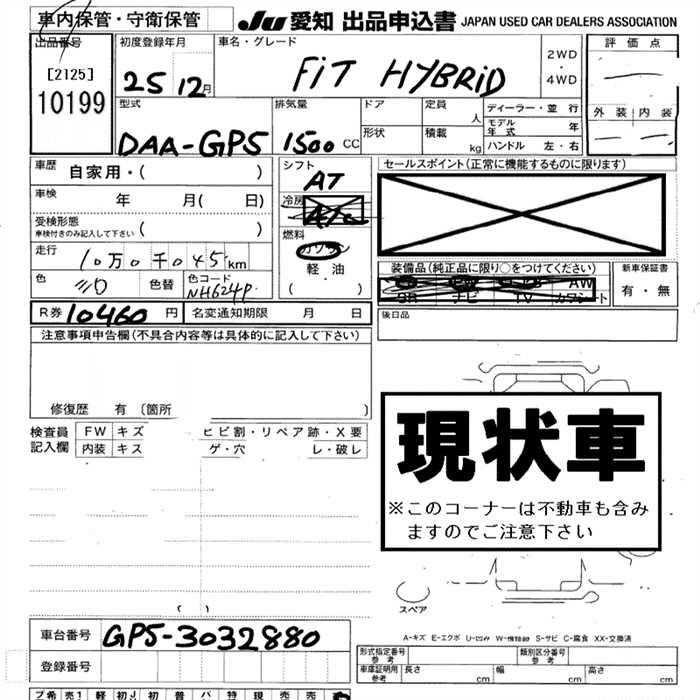 車内保管・守衛保管
JU 愛知 出品申込書 JAPAN USED CAR DEALERS ASSOCIATION
出品番号
[2125]
10199
初度登録年月
25 12月
車名・グレード
FiT HYBRiD
2WD
・
4WD
評価点
外装 内装
型式
DAA-GP5
排気量
1500 CC
ドア
形状
定員 人
積載 kg
ディーラー・並 行
モデル年式 年
ハンドル 左・右
車歴 自家用・( )
車検 年 月( 日)
受検形態
車検付きのみ記入して下さい ( )
走行 10万0千045km
色 色替 色コード NH624P
シフト
AT
冷房
A/C
燃料
ガソリン
軽・油
( ・ )
セールスポイント(正常に機能するものに限ります)
装備品(純正品に限り○をつけてください)
SR ナビ TV AW カワシート
新車保証書
有・無
R券 10460 円 名変通知期限 月 日
後日品
注意事項申告欄(不具合内容等は具体的に記入して下さい)
修復歴 有(箇所 )
検査員記入欄
FW キズ ヒビ割・リペア跡・X要
内装 キズ ゲ・穴 レ・破レ
現状車
※このコーナーは不動車も含み
ますのでご注意下さい
スペア
( )
A-キズ E-エクボ U-凹み W-補修跡 S-サビ C-腐食 XX-交換済
車台番号 GP5-3032880
登録番号
型式指定番号 参考
類別区分番号 参考
車庫証明用 参考 長さ cm 幅 cm 高さ cm